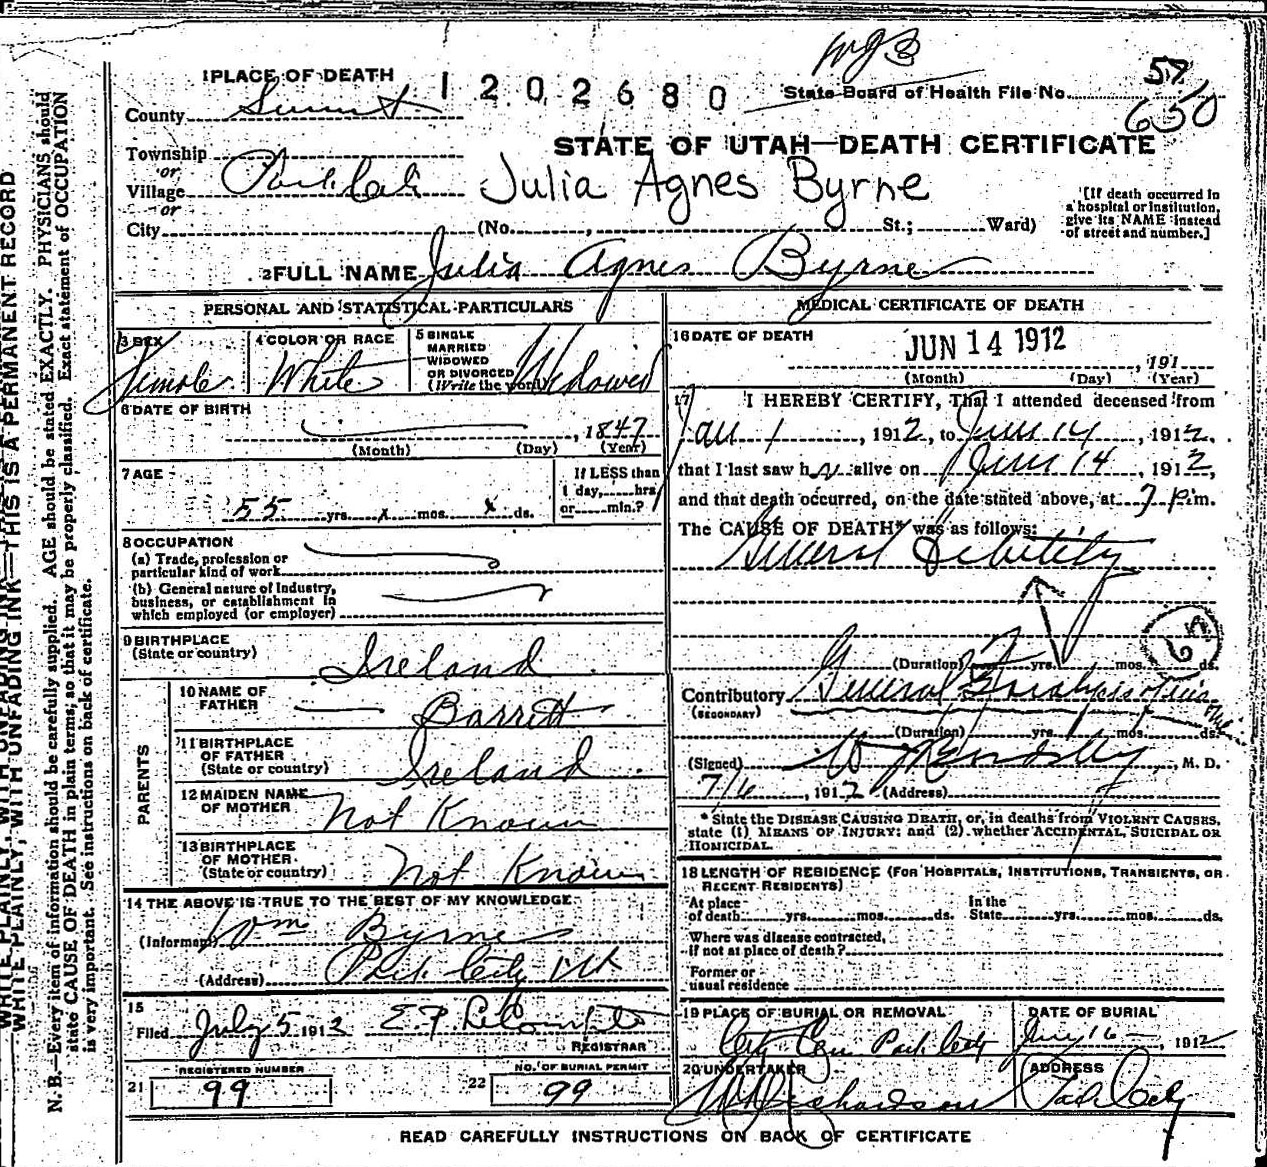 wgB
1 PLACE OF DEATH 1 2 0 2 6 8 0 State Board of Health File No. 57
650
County Summit
STATE OF UTAH—DEATH CERTIFICATE
Township
or
Village Park City Julia Agnes Byrne
or
City (No. , St.; Ward)
[If death occurred in
a hospital or institution,
give its NAME instead
of street and number.]
2 FULL NAME Julia Agnes Byrne
PERSONAL AND STATISTICAL PARTICULARS
3 SEX
Female
4 COLOR OR RACE
White
5 SINGLE
MARRIED
WIDOWED
OR DIVORCED
(Write the word)
Widowed
6 DATE OF BIRTH
, 1847
(Month) (Day) (Year)
7 AGE
55 yrs. x mos. x ds.
If LESS than
1 day, hrs
or min.?
8 OCCUPATION
(a) Trade, profession or
particular kind of work
(b) General nature of Industry,
business, or establishment in
which employed (or employer)
9 BIRTHPLACE
(State or country)
Ireland
PARENTS
10 NAME OF
FATHER
Barrett
11 BIRTHPLACE
OF FATHER
(State or country)
Ireland
12 MAIDEN NAME
OF MOTHER
Not Known
13 BIRTHPLACE
OF MOTHER
(State or country)
Not Known
14 THE ABOVE IS TRUE TO THE BEST OF MY KNOWLEDGE
(Informant) Wm Byrnes
(Address) Park City Utt
15
Filed July 5 1912
REGISTRAR
REGISTERED NUMBER
21 99
NO. OF BURIAL PERMIT
22 99
MEDICAL CERTIFICATE OF DEATH
16 DATE OF DEATH
JUN 14 1912
, 191
(Month) (Day) (Year)
17 I HEREBY CERTIFY, That I attended deceased from
Jan 1 , 1912, to June 14 , 1912,
that I last saw her alive on June 14 , 1912,
and that death occurred, on the date stated above, at 7 p.m.
The CAUSE OF DEATH* was as follows:
General Debility
(Duration) yrs. mos. ds.
65
Contributory General Paralysis
(SECONDARY)
(Duration) yrs. mos. ds.
(Signed) , M. D.
7/6 , 1912 (Address)
* State the DISEASE CAUSING DEATH, or, in deaths from VIOLENT CAUSES,
state (1) MEANS OF INJURY; and (2) whether ACCIDENTAL, SUICIDAL OR
HOMICIDAL.
18 LENGTH OF RESIDENCE (FOR HOSPITALS, INSTITUTIONS, TRANSIENTS, OR
RECENT RESIDENTS)
At place
of death yrs. mos. ds.
In the
State yrs. mos. ds.
Where was disease contracted,
if not at place of death?
Former or
usual residence
19 PLACE OF BURIAL OR REMOVAL
City Cem Park City
DATE OF BURIAL
16 , 1912
20 UNDERTAKER
Richardson
ADDRESS
Park City
READ CAREFULLY INSTRUCTIONS ON BACK OF CERTIFICATE
WRITE PLAINLY, WITH UNFADING INK—THIS IS A PERMANENT RECORD
N. B.—Every item of information should be carefully supplied. AGE should be stated EXACTLY. PHYSICIANS should
state CAUSE OF DEATH in plain terms, so that it may be properly classified. Exact statement of OCCUPATION
is very important. See instructions on back of certificate.